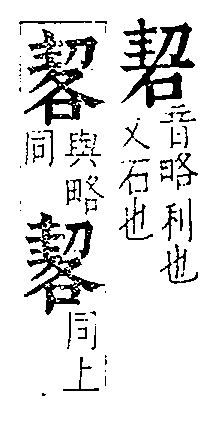 䂮
音略利也
又石也
與略
同
同上